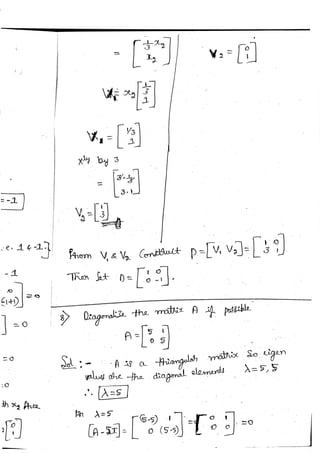 = [ 1/3 x₂
x₂ ]
V₁ = x₂ [ 1/3
1 ]
V₁ = [ 1/3
1 ]
xly by 3
= [ 3·1/3
3·1 ]
V₁ = [ 1
3 ]
V₂ = [ 0
1 ]
= -1
.e. 1 & -1.}
- 1
(1+1)] = 0
] = 0
= 0
:0
th x₂ free
[ 0
1 ]
From V₁ & V₂ Construct P = [V₁ V₂] = [ 1 0
3 1 ]
Then Set D = [ 1 0
0 -1 ].
3) Diagonalize the matrix A if possible.
A = [ 5 1
0 5 ]
Sol :- A is a triangular matrix So eigen
values are the diagonal elements λ = 5, 5
∴ λ = 5
λ = 5
[A - 5I] = [ (5-5) 1
0 (5-5) ] = [ 0 1
0 0 ] = 0